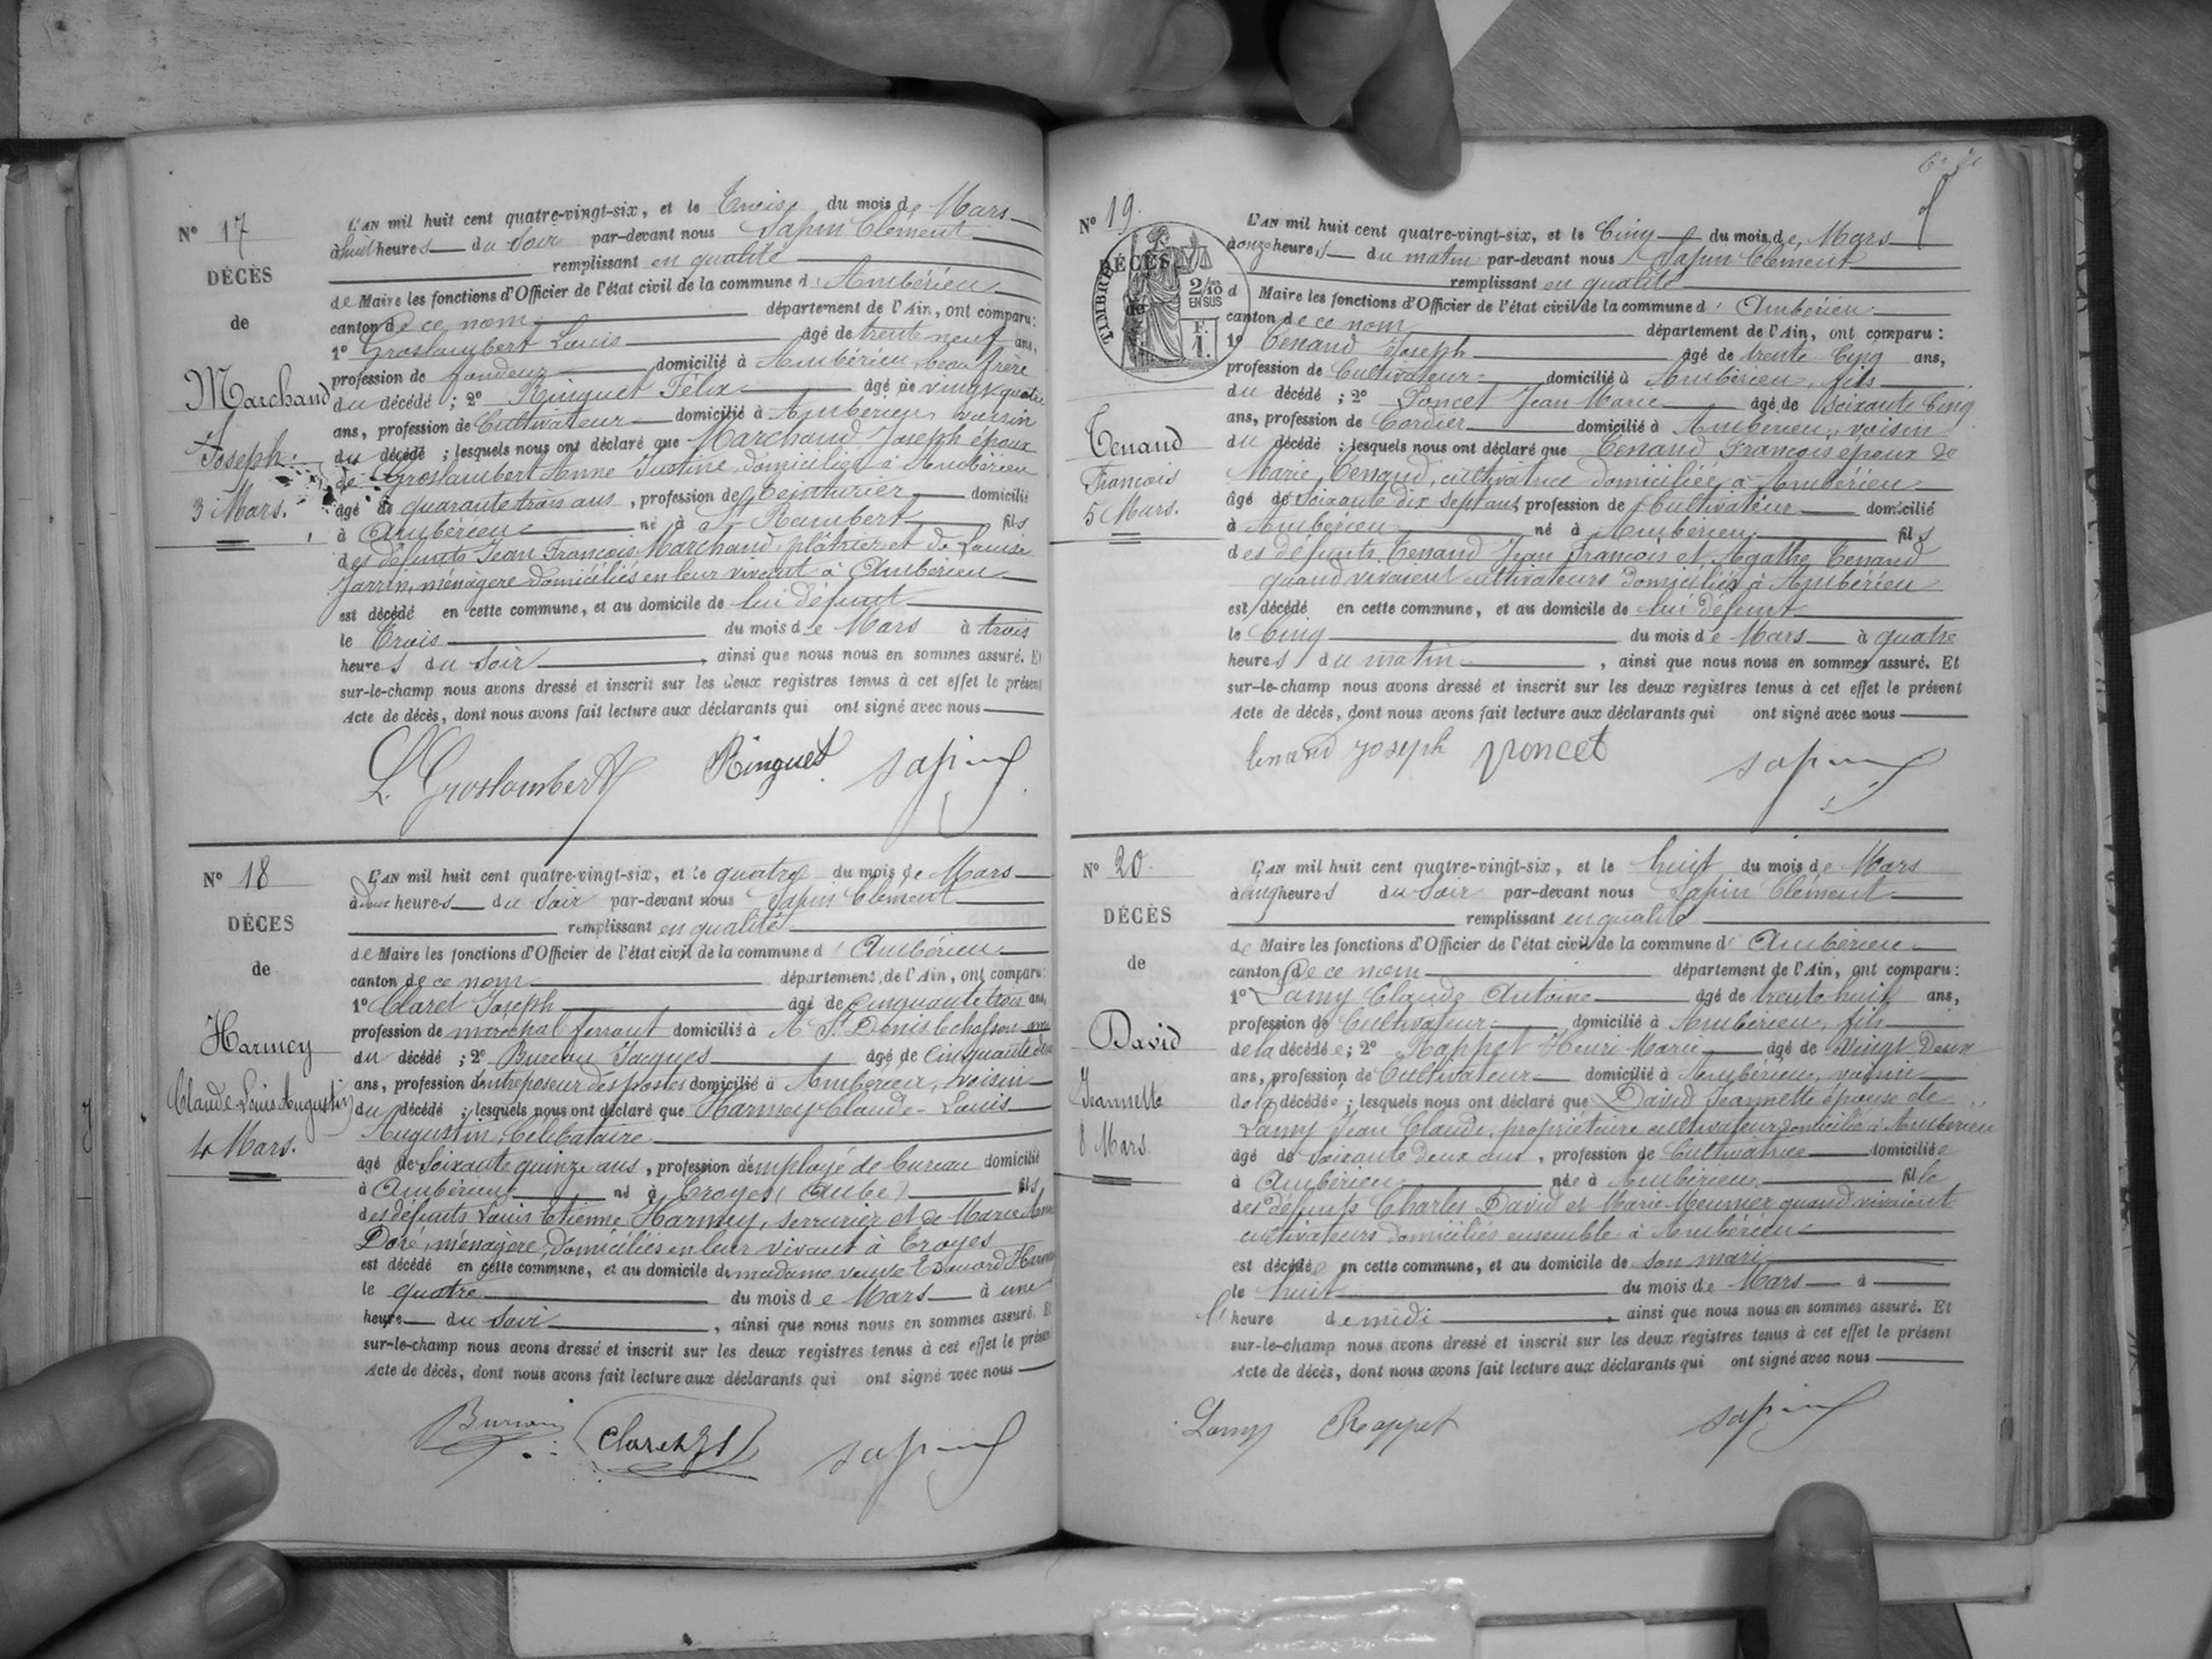 N° 17
DÉCÈS
de
Marchand
Joseph
3 Mars.
L'AN mil huit cent quatre-vingt-six, et le Trois du mois de Mars
à huit heures du Soir par-devant nous Sapin Clément
remplissant en qualité
de Maire les fonctions d'Officier de l'état civil de la commune d'Ambérieu
canton de ce nom département de l'Ain, ont comparu:
1° Groslambert Louis âgé de trente neuf ans,
profession de fondeur domicilié à Ambérieu, beau frère
du décédé ; 2° Ringuet Félix âgé de vingt quatre
ans, profession de Cultivateur domicilié à Ambérieu, voisin
du décédé ; lesquels nous ont déclaré que Marchand Joseph époux
de Groslambert Anne Justine, domiciliée à Ambérieu
âgé de quarante trois ans, profession de Teinturier domicilié
à Ambérieu né à St Rambert fils
des défunts Jean François Marchand, plâtrier et de Louise
Jarrin, ménagère domiciliés en leur vivant à Ambérieu
est décédé en cette commune, et au domicile de lui défunt
le Trois du mois de Mars à trois
heures du Soir, ainsi que nous nous en sommes assuré. Et
sur-le-champ nous avons dressé et inscrit sur les deux registres tenus à cet effet le présent
Acte de décès, dont nous avons fait lecture aux déclarants qui ont signé avec nous
L. Groslambert Ringuet Sapin
N° 18
DÉCÈS
de
Harmey
Claude-Louis Augustin
4 Mars.
L'AN mil huit cent quatre-vingt-six, et le quatre du mois de Mars
à deux heures du Soir par-devant nous Sapin Clément
remplissant en qualité
de Maire les fonctions d'Officier de l'état civil de la commune d'Ambérieu
canton de ce nom département de l'Ain, ont comparu:
1° Claret Joseph âgé de cinquante trois ans,
profession de maréchal ferrant domicilié à A St Denis le chosson ami
du décédé ; 2° Bureau Jacques âgé de Cinquante deux
ans, profession d'entreposeur des postes domicilié à Ambérieu, voisin
du décédé ; lesquels nous ont déclaré que Harmey Claude-Louis
Augustin, Célibataire
âgé de Soixante quinze ans, profession d'employé de bureau domicilié
à Ambérieu né à Troyes (Aube) fils
des défunts Louis Etienne Harmey, serrurier et de Marie Anne
Doré, ménagère, domiciliés en leur vivant à Troyes
est décédé en cette commune, et au domicile de madame veuve Edouard
le quatre du mois de Mars à une
heure du Soir, ainsi que nous nous en sommes assuré. Et
sur-le-champ nous avons dressé et inscrit sur les deux registres tenus à cet effet le présent
Acte de décès, dont nous avons fait lecture aux déclarants qui ont signé avec nous
Bureau Claret Sapin
N° 19.
TIMBRE
2/10 EN SUS
F. 1.
DÉCÈS
de
Tenand
François
5 Mars.
L'AN mil huit cent quatre-vingt-six, et le Cinq du mois de Mars
à onze heures du matin par-devant nous Sapin Clément
remplissant en qualité
d Maire les fonctions d'Officier de l'état civil de la commune d'Ambérieu
canton de ce nom département de l'Ain, ont comparu :
1° Tenand Joseph âgé de trente Cinq ans,
profession de Cultivateur domicilié à Ambérieu, fils
du décédé ; 2° Poncet Jean Marie âgé de Soixante Cinq
ans, profession de Cordier domicilié à Ambérieu, voisin
du décédé ; lesquels nous ont déclaré que Tenand François époux de
Marie Tenand, cultivatrice domiciliée à Ambérieu
âgé de Soixante dix sept ans, profession de Cultivateur domicilié
à Ambérieu né à Ambérieu fils
des défunts Tenand Jean François et Agathe Tenand
quand vivaient cultivateurs domiciliés à Ambérieu
est décédé en cette commune, et au domicile de lui défunt
le Cinq du mois de Mars à quatre
heures du matin, ainsi que nous nous en sommes assuré. Et
sur-le-champ nous avons dressé et inscrit sur les deux registres tenus à cet effet le présent
Acte de décès, dont nous avons fait lecture aux déclarants qui ont signé avec nous
Tenand Joseph Poncet Sapin
N° 20.
DÉCÈS
de
David
Jeannette
8 Mars.
L'AN mil huit cent quatre-vingt-six, et le huit du mois de Mars
à cinq heures du Soir par-devant nous Sapin Clément
remplissant en qualité
de Maire les fonctions d'Officier de l'état civil de la commune d'Ambérieu
canton de ce nom département de l'Ain, ont comparu :
1° Lamy Claude Antoine âgé de trente huit ans,
profession de Cultivateur domicilié à Ambérieu, fils
de la décédée ; 2° Rappet Henri Marie âgé de vingt deux
ans, profession de Cultivateur domicilié à Ambérieu, voisin
de la décédée ; lesquels nous ont déclaré que David Jeannette épouse de
Lamy Jean Claude, propriétaire cultivateur domicilié à Ambérieu
âgé de Soixante deux ans, profession de Cultivatrice domiciliée
à Ambérieu née à Ambérieu fille
des défunts Charles David et Marie Meunier quand vivaient
cultivateurs domiciliés ensemble à Ambérieu
est décédée en cette commune, et au domicile de son mari
le huit du mois de Mars à
l'heure de midi, ainsi que nous nous en sommes assuré. Et
sur-le-champ nous avons dressé et inscrit sur les deux registres tenus à cet effet le présent
Acte de décès, dont nous avons fait lecture aux déclarants qui ont signé avec nous
Lamy Rappet Sapin